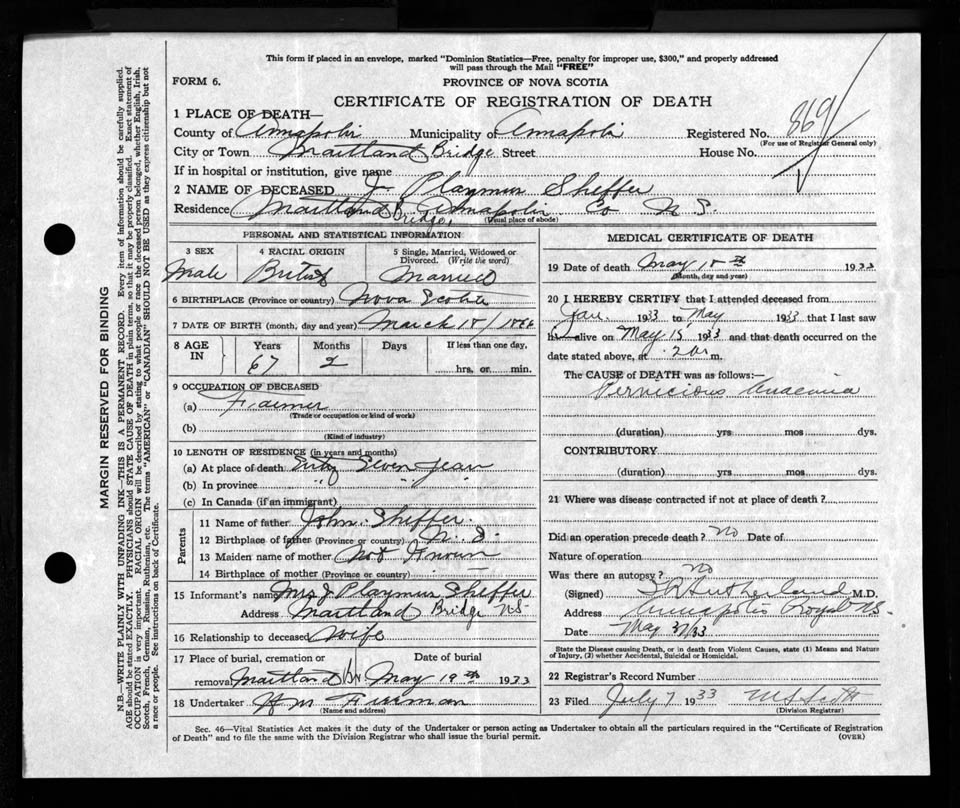 This form if placed in an envelope, marked "Dominion Statistics—Free, penalty for improper use, $300," and properly addressed
will pass through the Mail "FREE"
FORM 6.
PROVINCE OF NOVA SCOTIA
CERTIFICATE OF REGISTRATION OF DEATH
869
1 PLACE OF DEATH—
County of Annapolis Municipality of Annapolis Registered No.
(For use of Registrar General only)
City or Town Maitland Bridge Street House No.
If in hospital or institution, give name
2 NAME OF DECEASED J Playmus Sheffer
Residence Maitland Bridge, Annapolis Co N S.
(Usual place of abode)
PERSONAL AND STATISTICAL INFORMATION
3 SEX 4 RACIAL ORIGIN 5 Single, Married, Widowed or Divorced. (Write the word)
Male British Married
6 BIRTHPLACE (Province or country) Nova Scotia
7 DATE OF BIRTH (month, day and year) March 18/1866
8 AGE IN Years Months Days If less than one day,
67 2 hrs. or min.
9 OCCUPATION OF DECEASED
(a) Farmer
(Trade or occupation or kind of work)
(b)
(Kind of industry)
10 LENGTH OF RESIDENCE (in years and months)
(a) At place of death Sixty Seven Years
(b) In province " "
(c) In Canada (if an immigrant)
Parents
11 Name of father John Sheffer
12 Birthplace of father (Province or country) N. S.
13 Maiden name of mother Not Known
14 Birthplace of mother (Province or country) —
15 Informant's name Mrs J Playmus Sheffer
Address Maitland Bridge N S
16 Relationship to deceased Wife
17 Place of burial, cremation or Date of burial
removal Maitland Br May 19th 1933
18 Undertaker
(Name and address)
MEDICAL CERTIFICATE OF DEATH
19 Date of death May 18th 1933
(Month, day and year)
20 I HEREBY CERTIFY that I attended deceased from
Jan. 1933 to May 1933 that I last saw
h alive on May 15 1933 and that death occurred on the
date stated above, at m.
The CAUSE of DEATH was as follows:—
Pernicious Anaemia
(duration) yrs mos dys.
CONTRIBUTORY
(duration) yrs mos dys.
21 Where was disease contracted if not at place of death?
Did an operation precede death? no Date of
Nature of operation
Was there an autopsy? no
(Signed) Sutherland M.D.
Address Annapolis Royal N.S.
Date May /33
State the Disease causing Death, or in death from Violent Causes, state (1) Means and Nature
of Injury, (2) whether Accidental, Suicidal or Homicidal.
22 Registrar's Record Number
23 Filed July 7 1933
(Division Registrar)
Sec. 46—Vital Statistics Act makes it the duty of the Undertaker or person acting as Undertaker to obtain all the particulars required in the "Certificate of Registration
of Death" and to file the same with the Division Registrar who shall issue the burial permit. (OVER)
MARGIN RESERVED FOR BINDING
N.B.—WRITE PLAINLY WITH UNFADING INK—THIS IS A PERMANENT RECORD. Every item of information should be carefully supplied.
AGE should be stated EXACTLY. PHYSICIANS should STATE CAUSE OF DEATH in plain terms, so that it may be properly classified. Exact statement of
OCCUPATION is very important. RACIAL ORIGIN will be described by stating to what people or race the deceased person belonged, whether English, Irish,
Scotch, French, German, Russian, Ruthenian, etc. The terms "AMERICAN" or "CANADIAN" SHOULD NOT BE USED as they express citizenship but not
a race or people. See instructions on back of Certificate.